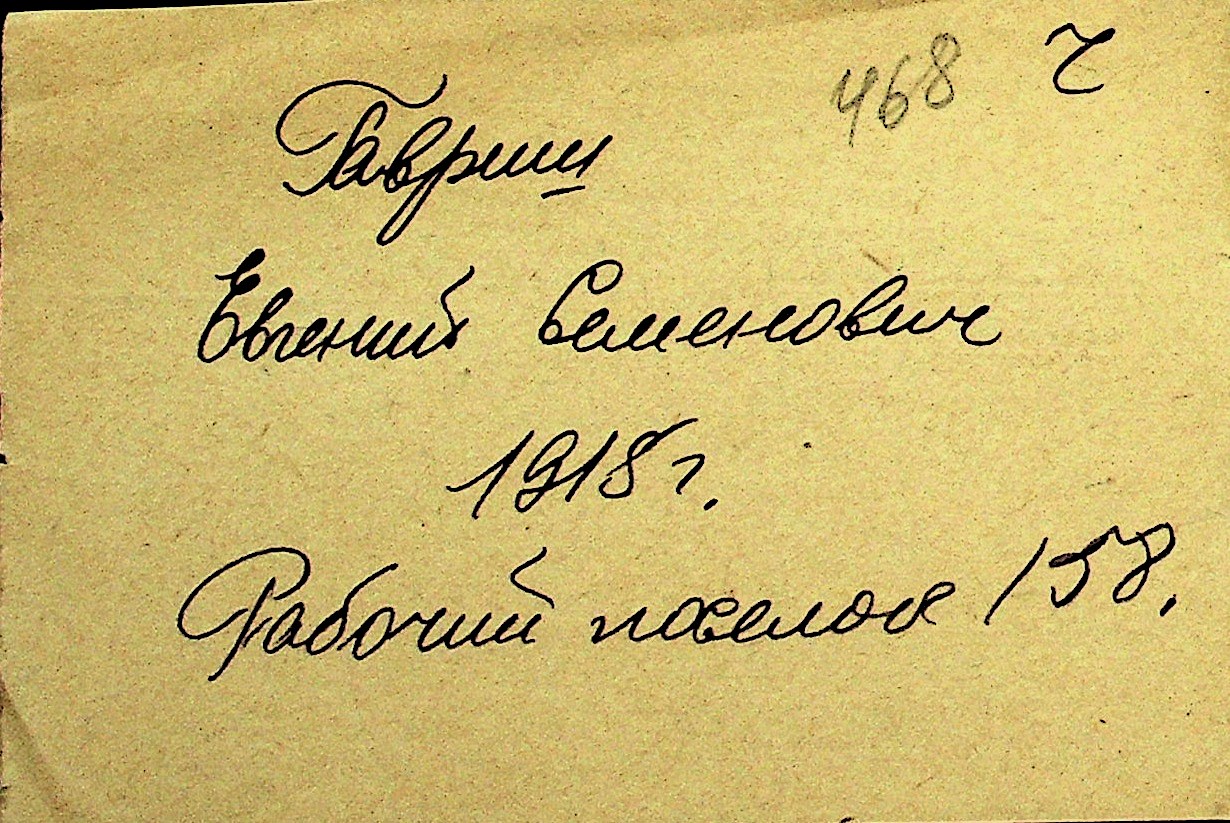 468 ч
Гавриш
Евгений Семенович
1918 г.
Рабочий поселок 158.